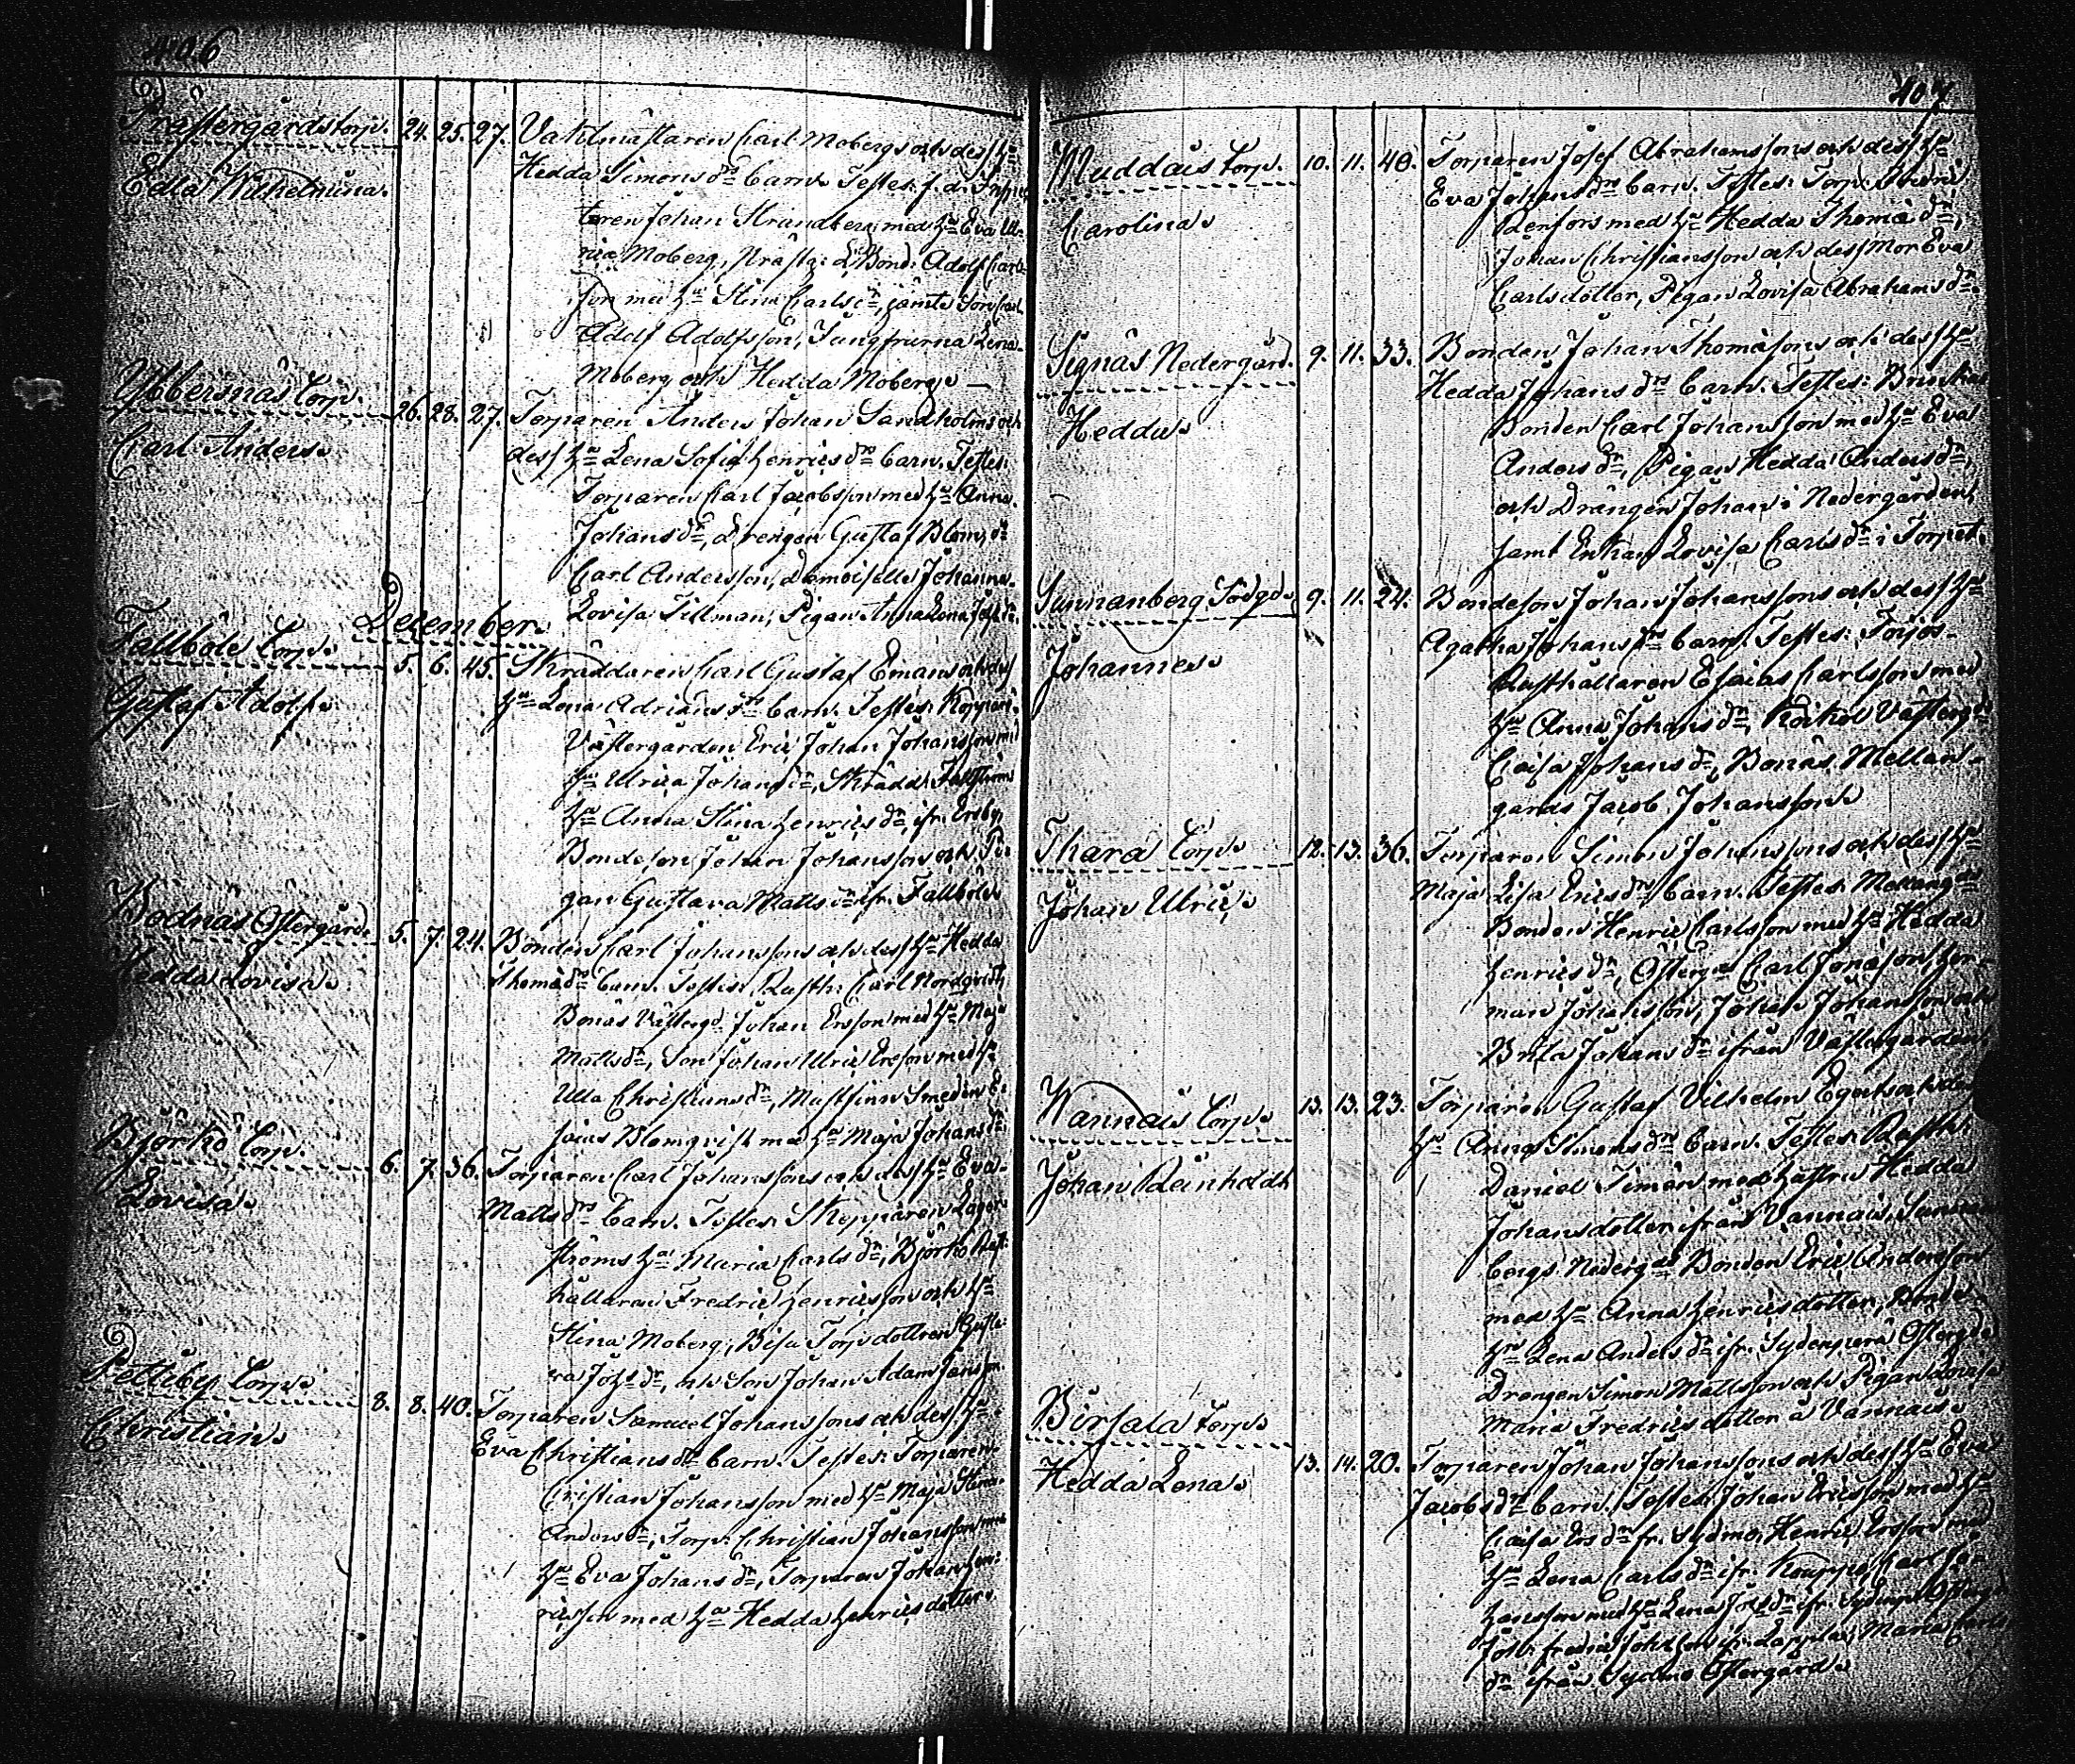 406
Prästergårds torp. 24. 25. 27. Vaktmästaren Carl Mobergs och dess Hu
Edla Wilhelmina. Hedda Simons drs barn. Testes: f. d. Inspec
toren Johan Strandberg med Hu Eva Ul-
rica Moberg, Adolf Carls-
son med Hu Stina Carls dr, jämte Son Carl
Adolf Adolfsson, Jungfrurna Lena
Moberg och Hedda Moberg.
Ybbersnäs Torp. 26. 28. 27. Torparen Anders Johan Sandholms och
Carl Anders. dess Hu Lena Sofia Henrics drs barn. Testes:
Torparen Carl Jacobsson med Hu Anna
Johans dr, Drengen Gustaf Blom, dr
Carl Andersson, Demoiselle Johanna
Lovisa Tillman, Pigan Anna Lena
December.
Fallböle Torp. 5. 6. 45. Skräddaren Carl Gustaf Emans och dess
Gustaf Adolf. Hu Lena Adrians drs barn. Testes:
Västergården Eric Johan Johansson med
Hu Ulrica Johans dr, Skrädd.
Hu Anna Stina Henrics dr, ifr. Ersby,
Bondeson Johan Johansson och Pi-
gan Gustava Matts dr ifr. Fallböle
Bodnäs Östergård. 5. 7. 24. Bonden Carl Johanssons och dess Hu Hedda
Hedda Lovisa. Thomæ drs barn. Testes: Rusth: Carl Nordqvist,
Bonäs Västergd. Johan Ersson med Hu Maja
Matts dr, Son Johan Ulric Ersson med Hu
Ulla Christians dr, Mastfinn Smeden E-
saias Blomqvist med Hu Maja Johans dr
Björkö Torp. 6. 7. 36. Torparen Carl Johanssons och dess Hu Eva
Lovisa. Matts drs barn. Testes: Skepparen Lager-
ströms Hu Maria Carls dr, Björkö Rust-
hållaren Fredric Henricsson och Hu
Stina Moberg, Bisa Torp dottren Gusta-
va Johs dr, och Son Johan Adam
Pettby Torp. 8. 8. 40. Torparen Samuel Johanssons och dess Hu
Christian. Eva Christians drs barn. Testes: Torparen
Cristian Johansson med Hu Maja Stina
Anders dr, Torp: Christian Johansson med
Hu Eva Johans dr, Torparen Johan Hen-
ricsson med Hu Hedda Henricsdotter.
407
Muddais torp. 10. 11. 40. Torparen Josef Abrahamssons och dess Hu
Carolina. Eva Johans drs barn. Testes: Torp:
Renfors med Hu Hedda Thomæ dr,
Johan Christiansson och dess Mor Eva
Carlsdotter, Pigan Lovisa Abrahams dr.
Signäs Nedergård. 9. 11. 33. Bonden Johan Thomæsons och dess Hu
Hedda. Hedda Johans drs barn. Testes:
Bonden Carl Johansson med Hu Eva
Anders dr, Pigan Hedda Anders dr,
och Drängen Johan i Nedergården,
samt Enkan Lovisa Carls dr i Torpet.
Sunnanberg Södgd. 9. 11. 24. Bondeson Johan Johanssons och dess Hu
Johannes. Agatha Johans drs barn. Testes:
Rusthållaren Esaias Carlsson med
Hu Anna Johans dr, Västergd
Caisa Johans dr, Bonäs Mellan-
gårds Jacob Johansson.
Thara Torp. 12. 13. 36. Torparen Simon Johanssons och dess Hu
Johan Ulric. Maja Lisa Erics drs barn. Testes: Mellangds
Bonden Henric Carlsson med Hu Hedda
Henrics dr, Östergd Carl Jonæson, Her-
man Johansson, Johan Johansson och
Brita Johans dr ifrån Västergården.
Wannais Torp. 13. 13. 23. Torparen Gustaf Vilhelm Egerts och dess
Johan Reinhold. Hu Anna Simons drs barn. Testes: Rusth:
Daniel Simon med Hustru Hedda
Johansdotter ifrån Vannais, Sunnan-
bergs Nedergds Bonden Eric Andersson
med Hu Anna Henricsdotter,
Hu Lena Anders dr ifr. Sydenperä Östergd
Drengen Simon Mattsson och Pigan Lovisa
Maria Fredricsdotter å Vannais.
Börsala Torp. 13. 14. 20. Torparen Johan Johanssons och dess Hu Eva
Hedda Lena. Jacobs drs barn. Testes: Johan Ericsson med Hu
Caisa Ers dr fr. Sydmo, Henric Ersson med
Hu Lena Carls dr ifr. Knuppo, Carl Jo-
hansson med Hu Lena Johs dr ifr. Östergd
Fredric Johsson ifr. Lappdal, Maria Carls
dr ifrån Sydmo Östergård.